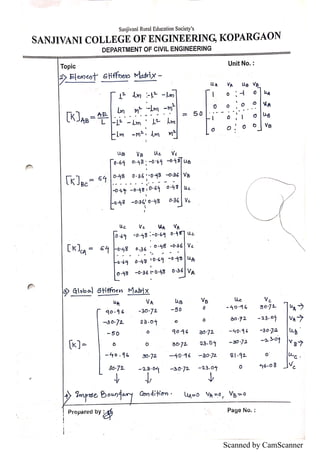 Sanjivani Rural Education Society's
SANJIVANI COLLEGE OF ENGINEERING, KOPARGAON
DEPARTMENT OF CIVIL ENGINEERING
Topic
Unit No. :
2) Element Stiffness Matrix -
UA VA UB VB
[K]AB = AE/L = 50
l² lm -l² -lm
lm m² -lm -m²
-l² -lm l² lm
-lm -m² lm m²
1 0 -1 0 UA
0 0 0 0 VA
-1 0 1 0 UB
0 0 0 0 VB
UB VB UC VC
[K]BC = 64
0.64 0.48 -0.64 -0.48 UB
0.48 0.36 -0.48 -0.36 VB
-0.64 -0.48 0.64 0.48 UC
-0.48 -0.36 0.48 0.36 VC
UC VC UA VA
[K]CA = 64
0.64 -0.48 -0.64 0.48 UC
-0.48 0.36 0.48 -0.36 VC
-0.64 0.48 0.64 -0.48 UA
0.48 -0.36 -0.48 0.36 VA
3) Global Stiffness Matrix
UA VA UB VB UC VC
[K] =
90.96 -30.72 -50 0 -40.96 30.72 UA →
-30.72 23.04 0 0 30.72 -23.04 VA →
-50 0 90.96 30.72 -40.96 -30.72 UB
0 0 30.72 23.04 -30.72 -23.04 VB →
-40.96 30.72 -40.96 -30.72 81.92 0 UC
30.72 -23.04 -30.72 -23.04 0 46.08 VC
4) Impose Boundary Condition. UA=0 VA=0, VB=0
Prepared by :
Page No. :
Scanned by CamScanner